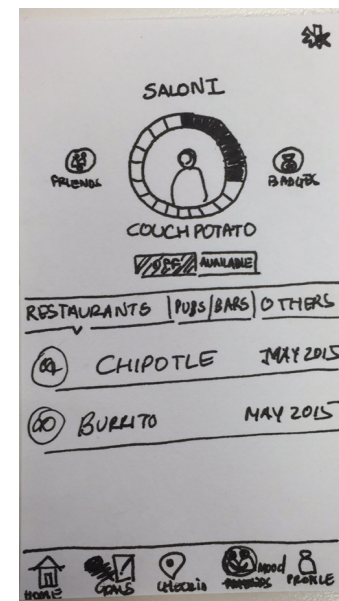 SALONI
FRIENDS
BADGES
COUCH POTATO
OFF AVAILABLE
RESTAURANTS | PUBS/BARS | OTHERS
CHIPOTLE MAY 2015
BURRITO MAY 2015
HOME GOALS CHECKIN MOOD PROFILE